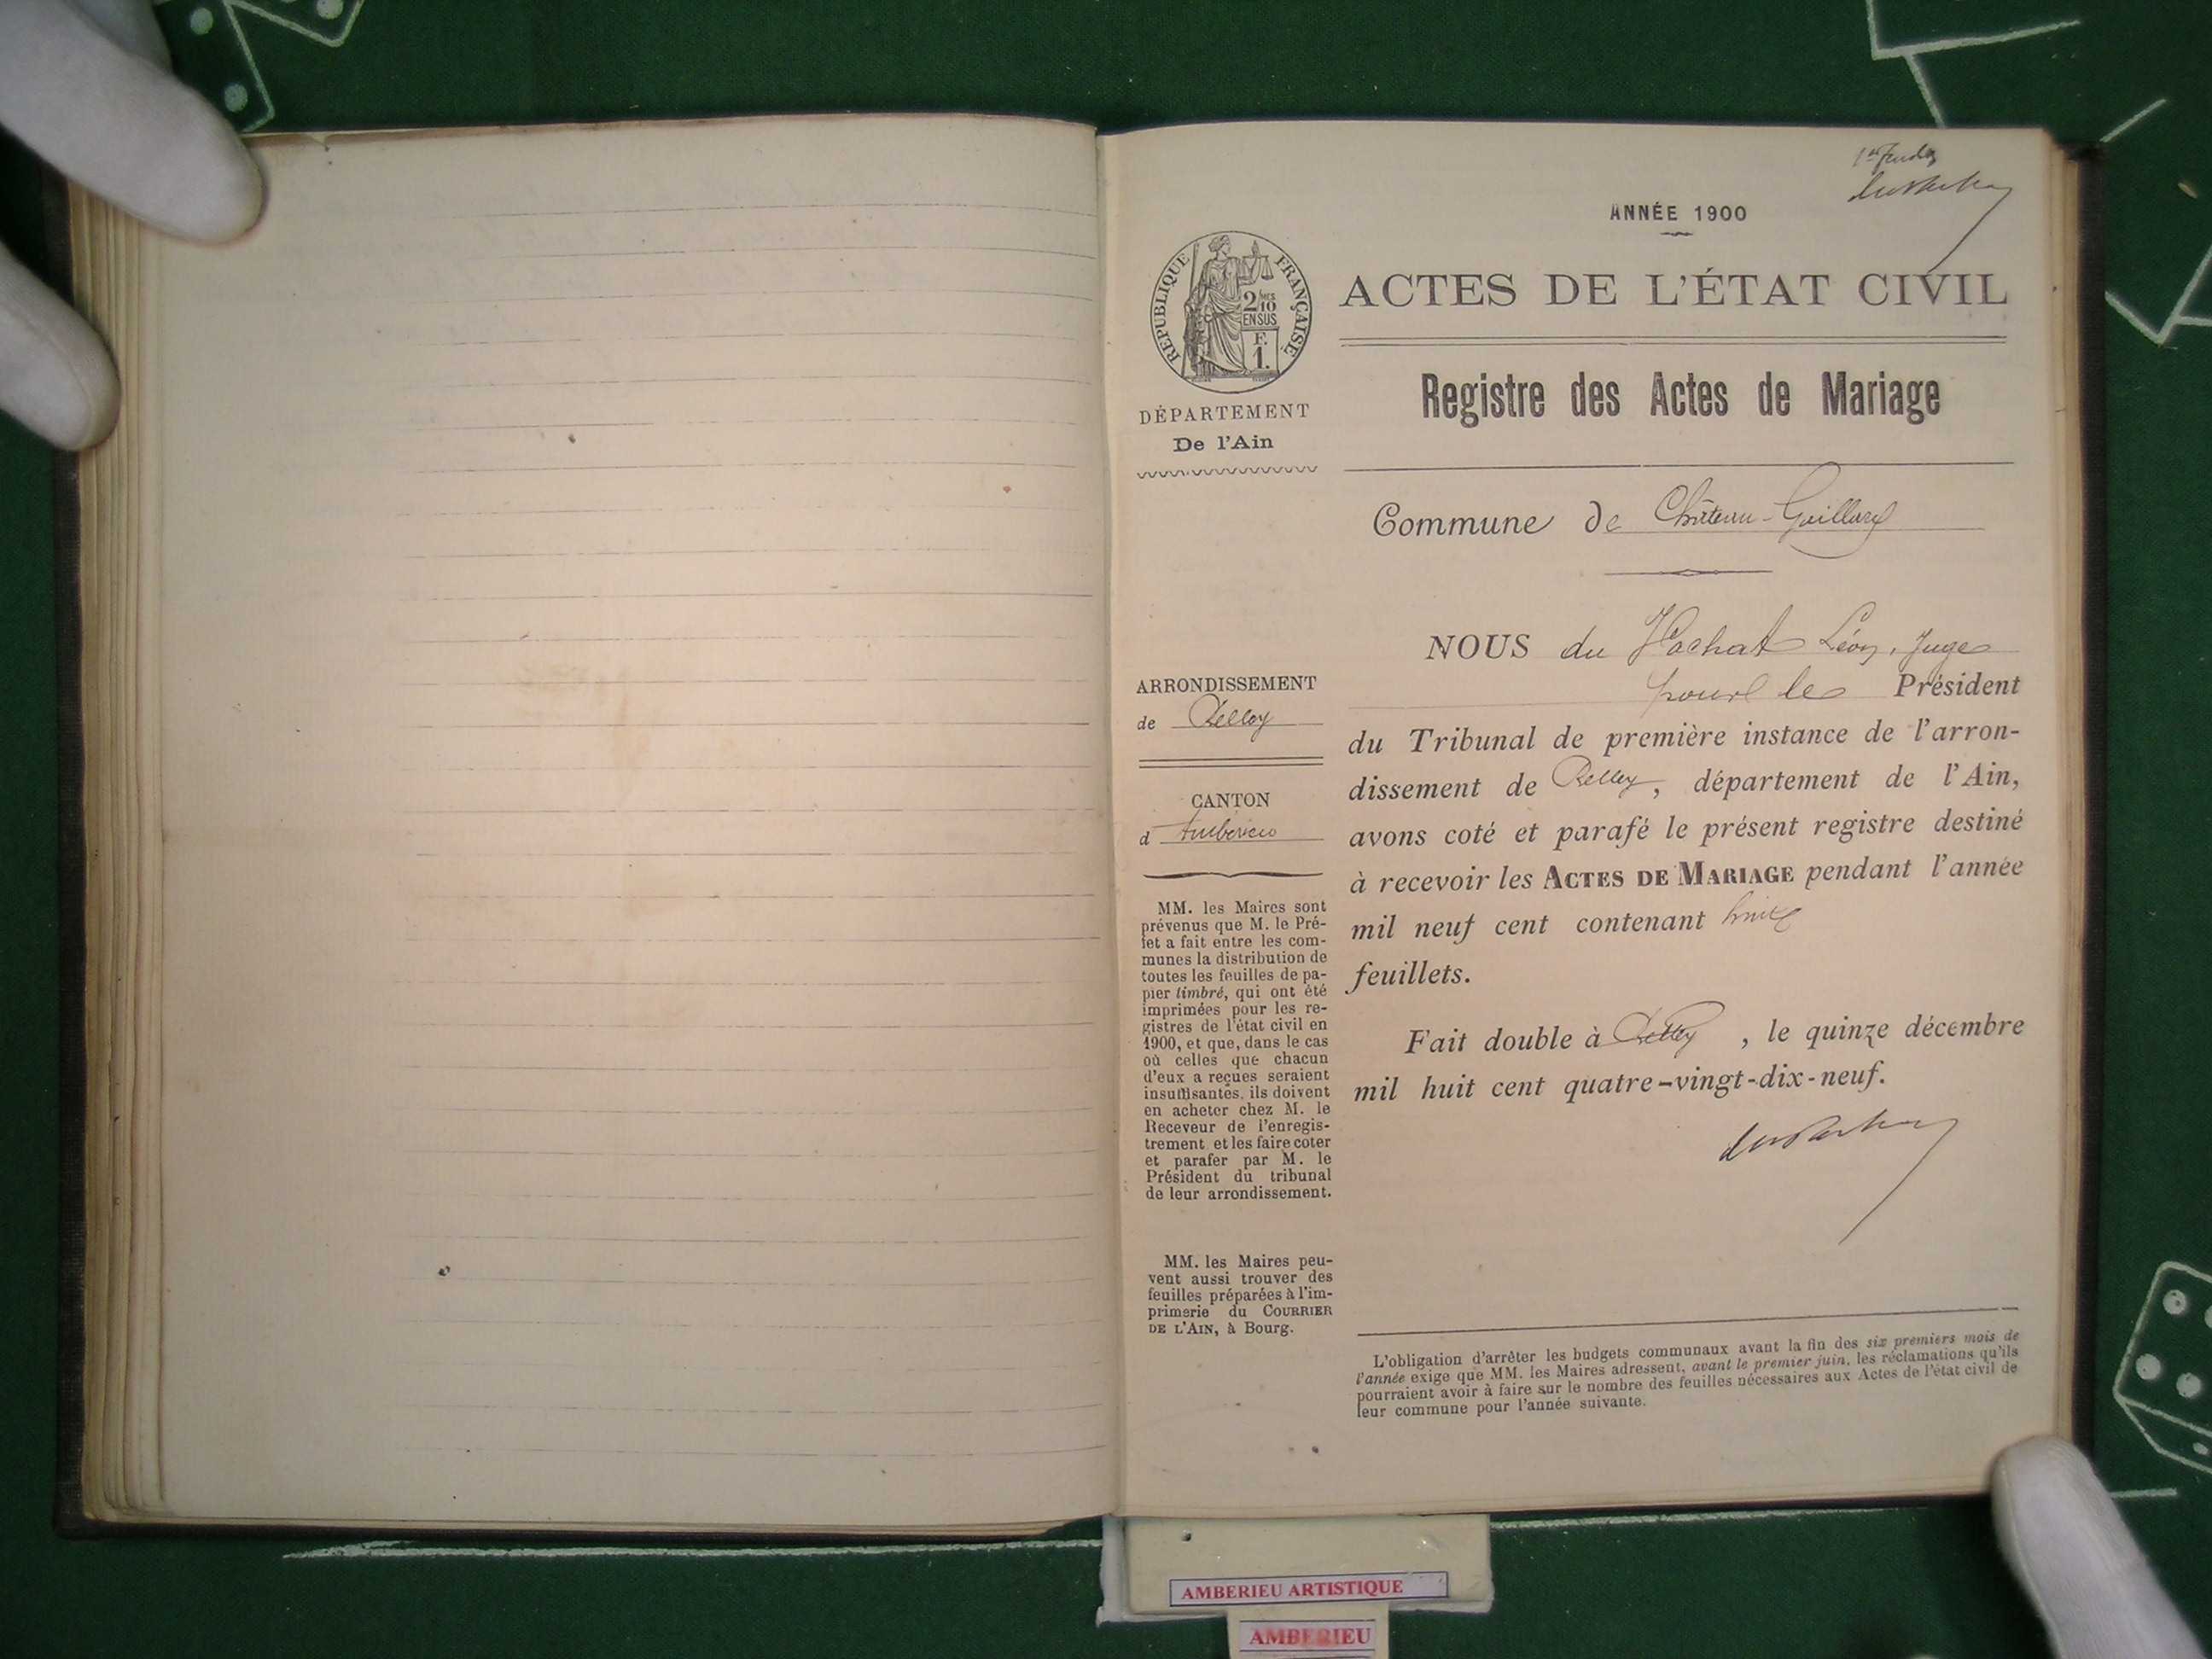 ANNÉE 1900
ACTES DE L'ÉTAT CIVIL
Registre des Actes de Mariage
Commune de Château-Gaillard
NOUS du Hachat Léon, Juge
pour le Président
du Tribunal de première instance de l'arron-
dissement de Belley, département de l'Ain,
avons coté et parafé le présent registre destiné
à recevoir les ACTES DE MARIAGE pendant l'année
mil neuf cent contenant huit
feuillets.
Fait double à Belley, le quinze décembre
mil huit cent quatre-vingt-dix-neuf.
L'obligation d'arrêter les budgets communaux avant la fin des six premiers mois de
l'année exige que MM. les Maires adressent, avant le premier juin, les réclamations qu'ils
pourraient avoir à faire sur le nombre des feuilles nécessaires aux Actes de l'état civil de
leur commune pour l'année suivante.
RÉPUBLIQUE FRANÇAISE
2/10
EN SUS
F.
1.
DÉPARTEMENT
De l'Ain
ARRONDISSEMENT
de Belley
CANTON
d'Ambérieu
MM. les Maires sont
prévenus que M. le Pré-
fet a fait entre les com-
munes la distribution de
toutes les feuilles de pa-
pier timbré, qui ont été
imprimées pour les re-
gistres de l'état civil en
1900, et que, dans le cas
où celles que chacun
d'eux a reçues seraient
insuffisantes, ils doivent
en acheter chez M. le
Receveur de l'enregis-
trement et les faire coter
et parafer par M. le
Président du tribunal
de leur arrondissement.
MM. les Maires peu-
vent aussi trouver des
feuilles préparées à l'im-
primerie du COURRIER
DE L'AIN, à Bourg.
AMBERIEU ARTISTIQUE
AMBERIEU